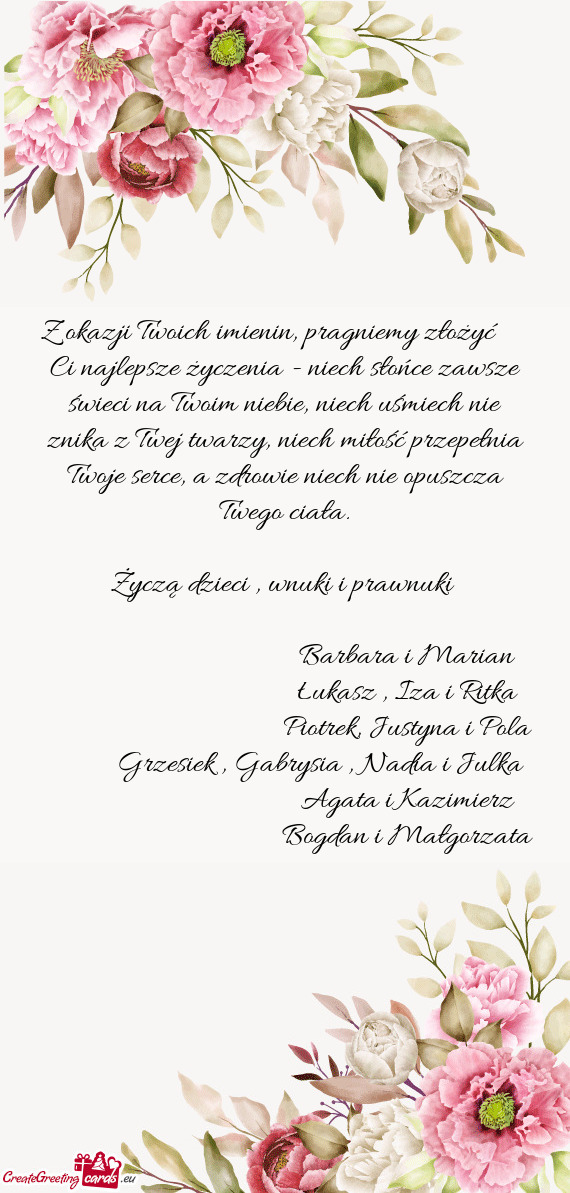 Z okazji Twoich imienin, pragniemy złożyć
Ci najlepsze życzenia - niech słońce zawsze
świeci na Twoim niebie, niech uśmiech nie
znika z Twej twarzy, niech miłość przepełnia
Twoje serce, a zdrowie niech nie opuszcza
Twego ciała.
Życzą dzieci , wnuki i prawnuki
Barbara i Marian
Łukasz , Iza i Ritka
Piotrek, Justyna i Pola
Grzesiek , Gabrysia , Nadia i Julka
Agata i Kazimierz
Bogdan i Małgorzata
CreateGreeting cards .eu